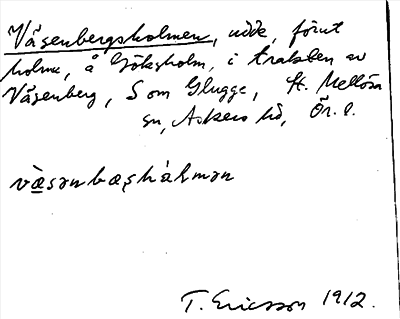 Väsenbergsholmen, udde, förut
holme, å Göksholm, i trakten av
Väsenberg, S om Glugge, St. Mellösa
sn, Askers hd, Ör. l.
væsənbæṣhålmən
T. Ericsson 1912.